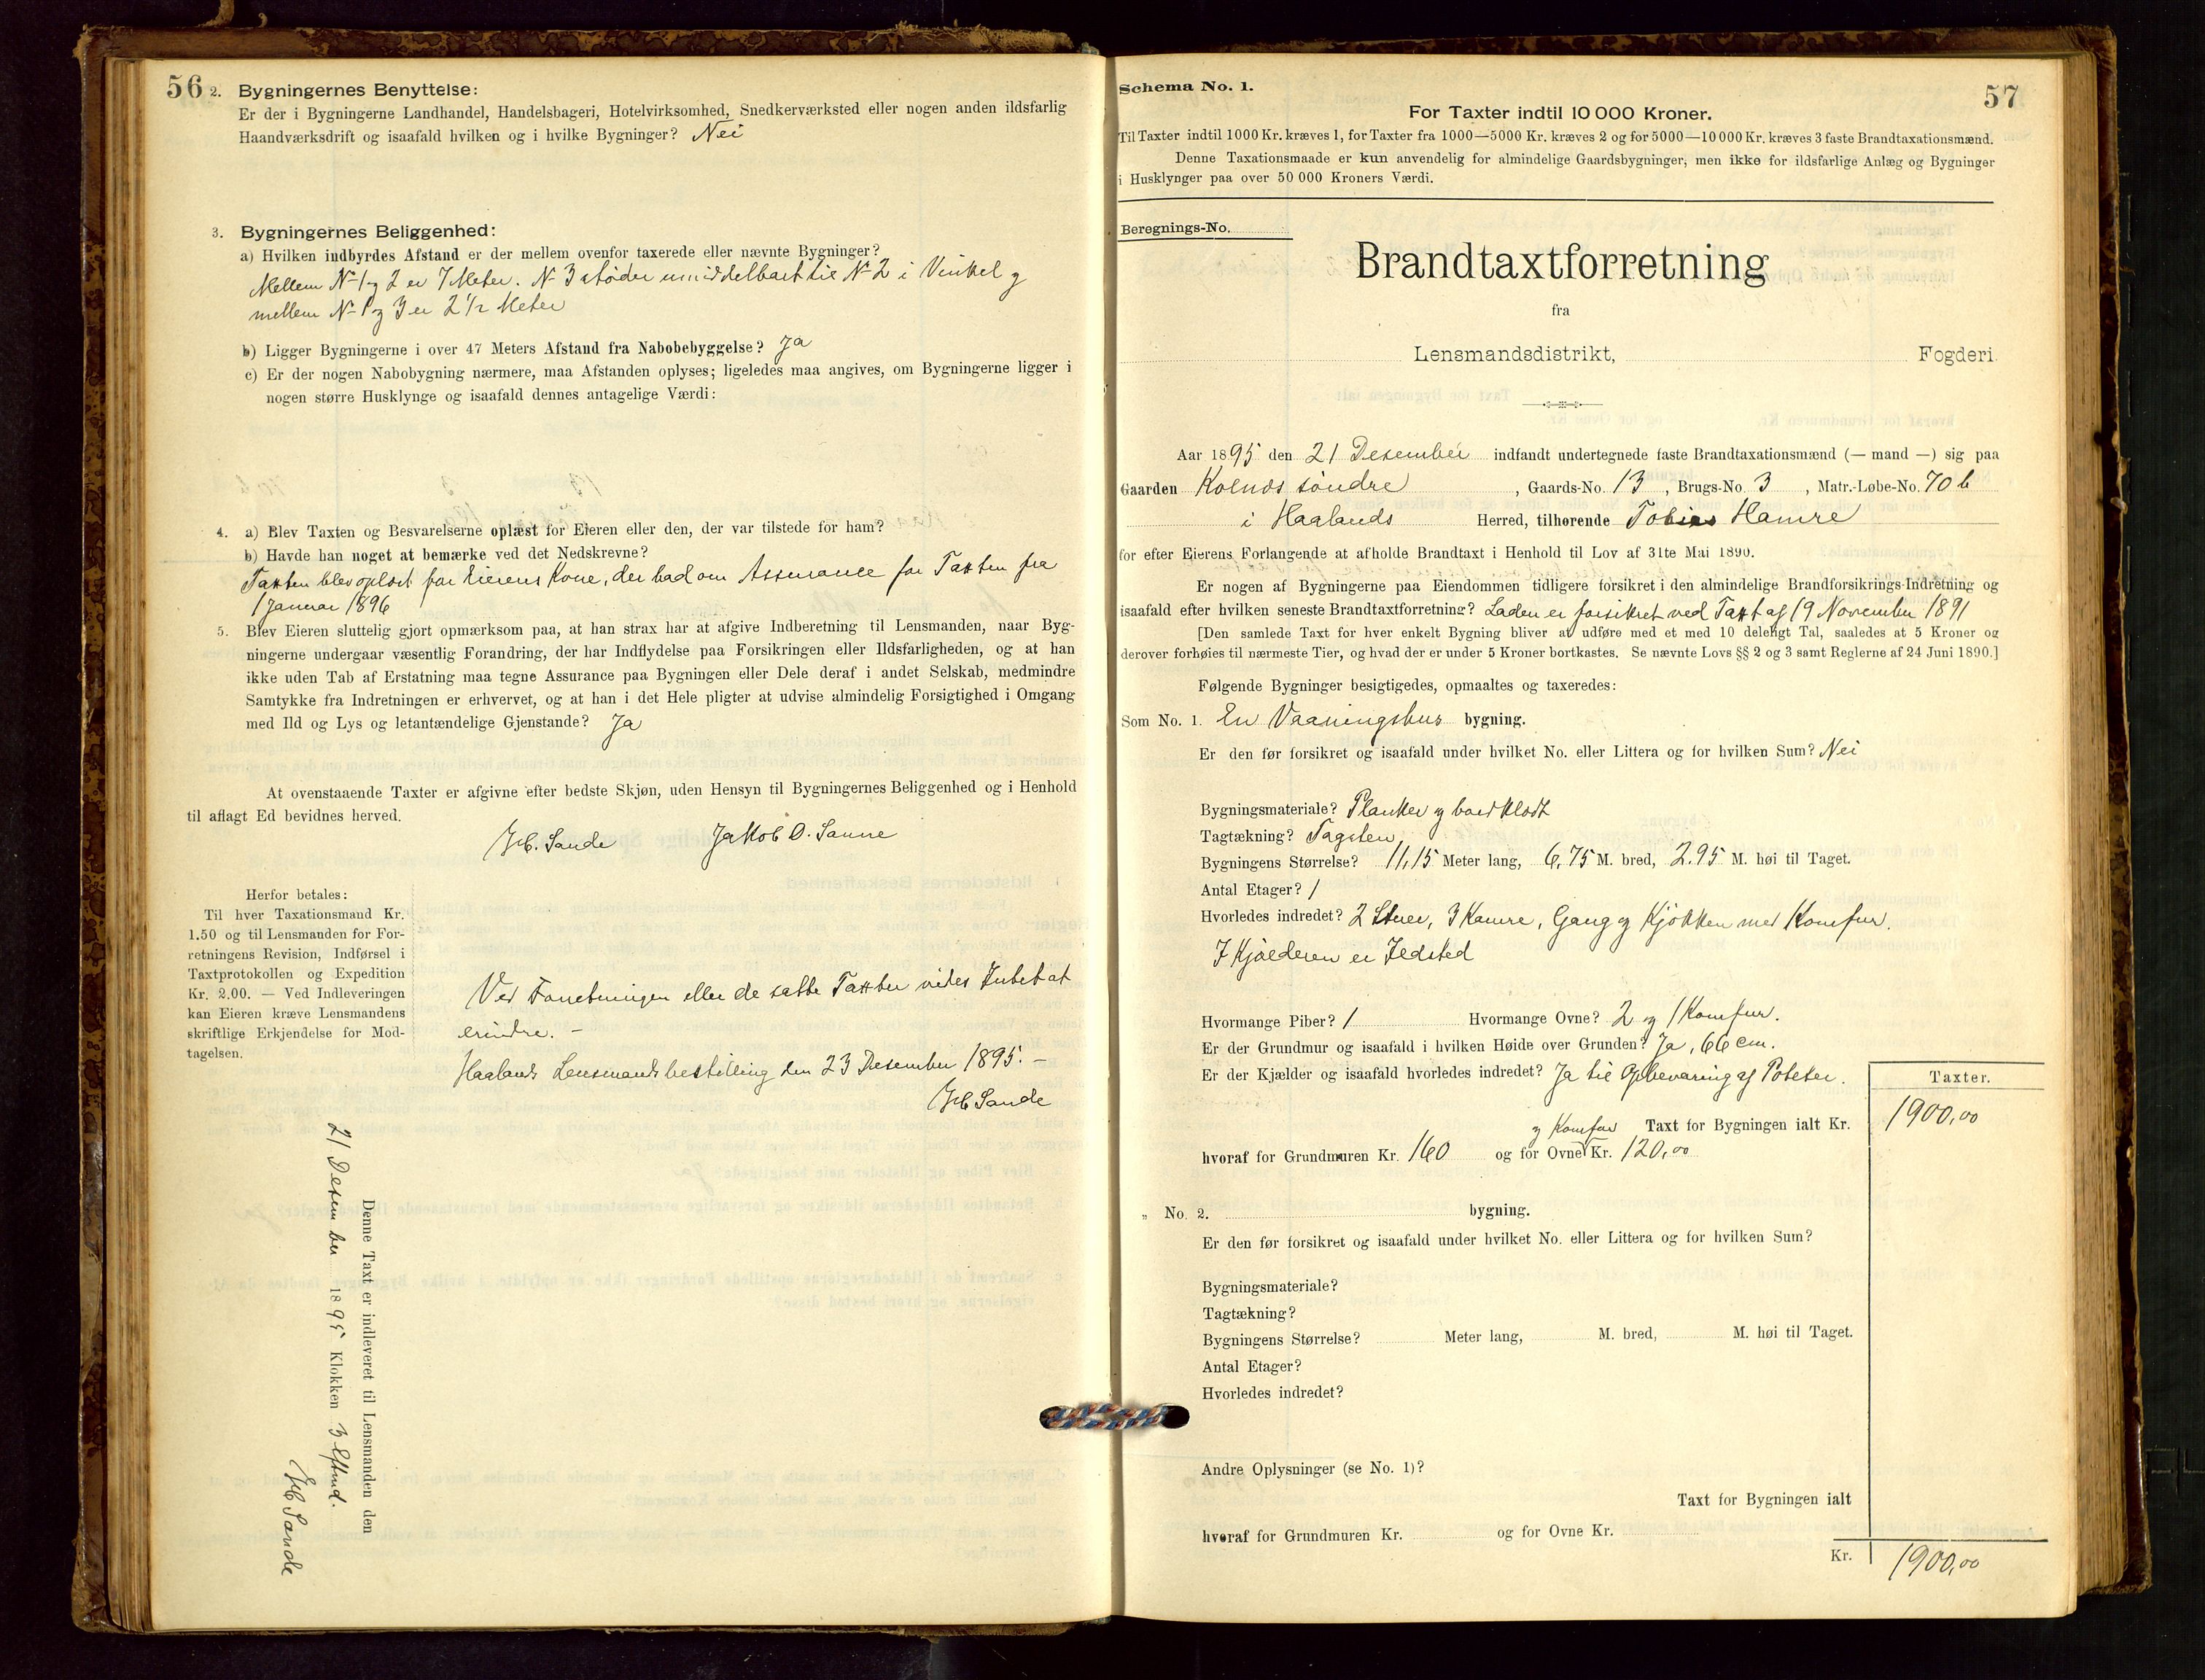 56
2. Bygningernes Benyttelse:
Er der i Bygningerne Landhandel, Handelsbageri, Hotelvirksomhed, Snedkerværksted eller nogen anden ildsfarlig
Haandværksdrift og isaafald hvilken og i hvilke Bygninger? Nei
3. Bygningernes Beliggenhed:
a) Hvilken indbyrdes Afstand er der mellem ovenfor taxerede eller nævnte Bygninger?
Mellem N 1 og 2 er 7 Meter. N 3 støder umiddelbart til N 2 i Vinkel og
mellem N 1 og 3 er 2 1/2 Meter
b) Ligger Bygningerne i over 47 Meters Afstand fra Nabobebyggelse? Ja
c) Er der nogen Nabobygning nærmere, maa Afstanden oplyses; ligeledes maa angives, om Bygningerne ligger i
nogen større Husklynge og isaafald dennes antagelige Værdi:
4. a) Blev Taxten og Besvarelserne oplæst for Eieren eller den, der var tilstede for ham?
b) Havde han noget at bemærke ved det Nedskrevne?
Taxten blev oplæst for Eierens Kone, der bad om Assurance for Taxten fra
1 Januar 1896
5. Blev Eieren sluttelig gjort opmærksom paa, at han strax har at afgive Indberetning til Lensmanden, naar Byg-
ningerne undergaar væsentlig Forandring, der har Indflydelse paa Forsikringen eller Ildsfarligheden, og at han
ikke uden Tab af Erstatning maa tegne Assurance paa Bygningen eller Dele deraf i andet Selskab, medmindre
Samtykke fra Indretningen er erhvervet, og at han i det Hele pligter at udvise almindelig Forsigtighed i Omgang
med Ild og Lys og letantændelige Gjenstande? Ja
At ovenstaaende Taxter er afgivne efter bedste Skjøn, uden Hensyn til Bygningernes Beliggenhed og i Henhold
til aflagt Ed bevidnes herved.
Sande Jakob O. Sunne
Herfor betales:
Til hver Taxationsmand Kr.
1.50 og til Lensmanden for For-
retningens Revision, Indførsel i
Taxtprotokollen og Expedition
Kr. 2.00. — Ved Indleveringen
kan Eieren kræve Lensmandens
skriftlige Erkjendelse for Mod-
tagelsen.
Ved Forretningen eller de satte Taxter vides Intet at
erindre. -
Haalands Lensmandsbestilling den 23 Desember 1895. -
Sande
Denne Taxt er indleveret til Lensmanden den
21 Desember 1895 Klokken 3 Eftmd.
Sande
57
Schema No. 1.
For Taxter indtil 10 000 Kroner.
Til Taxter indtil 1000 Kr. kræves 1, for Taxter fra 1000—5000 Kr. kræves 2 og for 5000—10 000 Kr. kræves 3 faste Brandtaxationsmænd.
Denne Taxationsmaade er kun anvendelig for almindelige Gaardsbygninger, men ikke for ildsfarlige Anlæg og Bygninger
i Husklynger paa over 50 000 Kroners Værdi.
Beregnings-No.
Brandtaxtforretning
fra
Lensmandsdistrikt, Fogderi.
Aar 1895 den 21 Desember indfandt undertegnede faste Brandtaxationsmænd (— mand —) sig paa
Gaarden Kolnæs søndre, Gaards-No. 13, Brugs-No. 3, Matr.-Løbe-No. 70 b
i Haalands Herred, tilhørende Tobias Hamre
for efter Eierens Forlangende at afholde Brandtaxt i Henhold til Lov af 31te Mai 1890.
Er nogen af Bygningerne paa Eiendommen tidligere forsikret i den almindelige Brandforsikrings-Indretning og
isaafald efter hvilken seneste Brandtaxtforretning? Laden er forsikret ved Taxt af 19 November 1891
[Den samlede Taxt for hver enkelt Bygning bliver at udføre med et med 10 deleligt Tal, saaledes at 5 Kroner og
derover forhøies til nærmeste Tier, og hvad der er under 5 Kroner bortkastes. Se nævnte Lovs §§ 2 og 3 samt Reglerne af 24 Juni 1890.]
Følgende Bygninger besigtigedes, opmaaltes og taxeredes:
Som No. 1. En Vaaningshus bygning.
Er den før forsikret og isaafald under hvilket No. eller Littera og for hvilken Sum? Nei
Bygningsmateriale? Planker og bordklædt
Tagtækning? Tagsten
Bygningens Størrelse? 11,15 Meter lang, 6,75 M. bred, 2.95 M. høi til Taget.
Antal Etager? 1
Hvorledes indredet? 2 Stuer, 3 Kamre, Gang og Kjøkken med Komfur.
I Kjælderen er Ildsted
Hvormange Piber? 1 Hvormange Ovne? 2 og 1 Komfur.
Er der Grundmur og isaafald i hvilken Høide over Grunden? Ja, 66 cm.
Er der Kjælder og isaafald hvorledes indredet? Ja til Opbevaring af Poteter.
Taxter.
Taxt for Bygningen ialt Kr. 1900,00
hvoraf for Grundmuren Kr. 160 og for Ovne og Komfur Kr. 120,00
„ No. 2. bygning.
Er den før forsikret og isaafald under hvilket No. eller Littera og for hvilken Sum?
Bygningsmateriale?
Tagtækning?
Bygningens Størrelse? Meter lang, M. bred, M. høi til Taget.
Antal Etager?
Hvorledes indredet?
Andre Oplysninger (se No. 1)?
Taxt for Bygningen ialt
hvoraf for Grundmuren Kr. og for Ovne Kr.
Kr. 1900,00